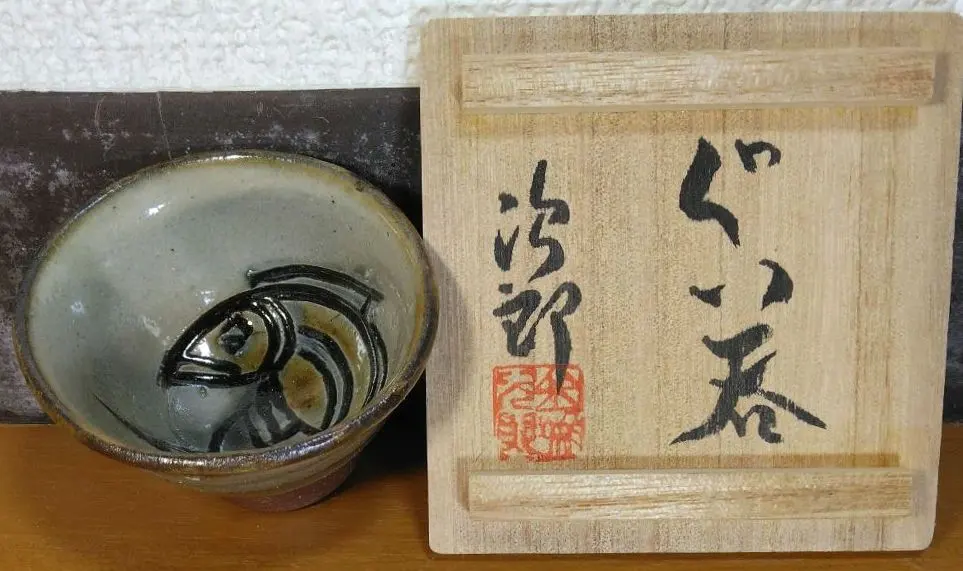 ぐい呑
次郎